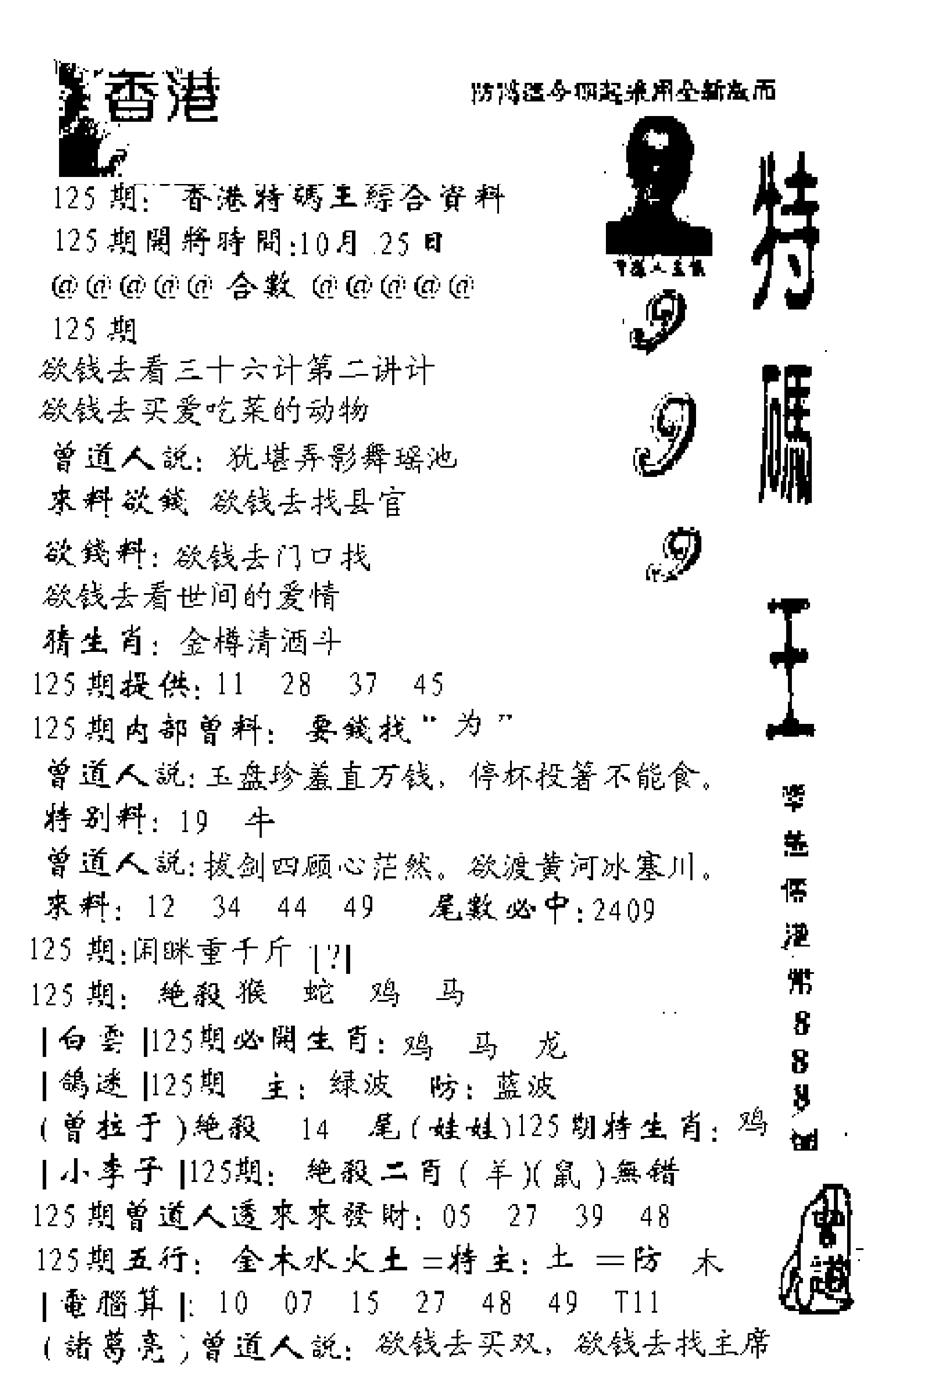 香港
防鴻 今期起采用全新版面
125期: 香港特碼王綜合資料
125期開將時間:10月.25日
@@@@@ 合數 @@@@@
125期
欲钱去看三十六计第二讲计
欲钱去买爱吃菜的动物
曾道人説: 犹堪弄影舞瑶池
來料欲錢 欲钱去找县官
欲錢料: 欲钱去门口找
欲钱去看世间的爱情
猜生肖: 金樽清酒斗
125期提供: 11 28 37 45
125期内部曾料: 要錢找“为”
曾道人説:玉盘珍羞直万钱，停杯投箸不能食。
特别料: 19 牛
曾道人説:拔剑四顾心茫然。欲渡黄河冰塞川。
來料: 12 34 44 49 尾數必中:2409
125期:闲眯重千斤 |?|
125期: 絶殺猴 蛇 鸡 马
|白雲|125期必開生肖: 鸡 马 龙
|鴿迷|125期 主: 绿波 防: 蓝波
(曾拉于)絶殺 14 尾(娃娃)125期特生肖: 鸡
|小李子|125期: 絶殺二肖(羊)(鼠)無错
125期曾道人透來來發財: 05 27 39 48
125期五行: 金木水火土=特主: 土 =防 木
|電腦算|: 10 07 15 27 48 49 T11
(諸葛亮)曾道人説: 欲钱去买双，欲钱去找主席
特碼王
999
港幣888
曾道